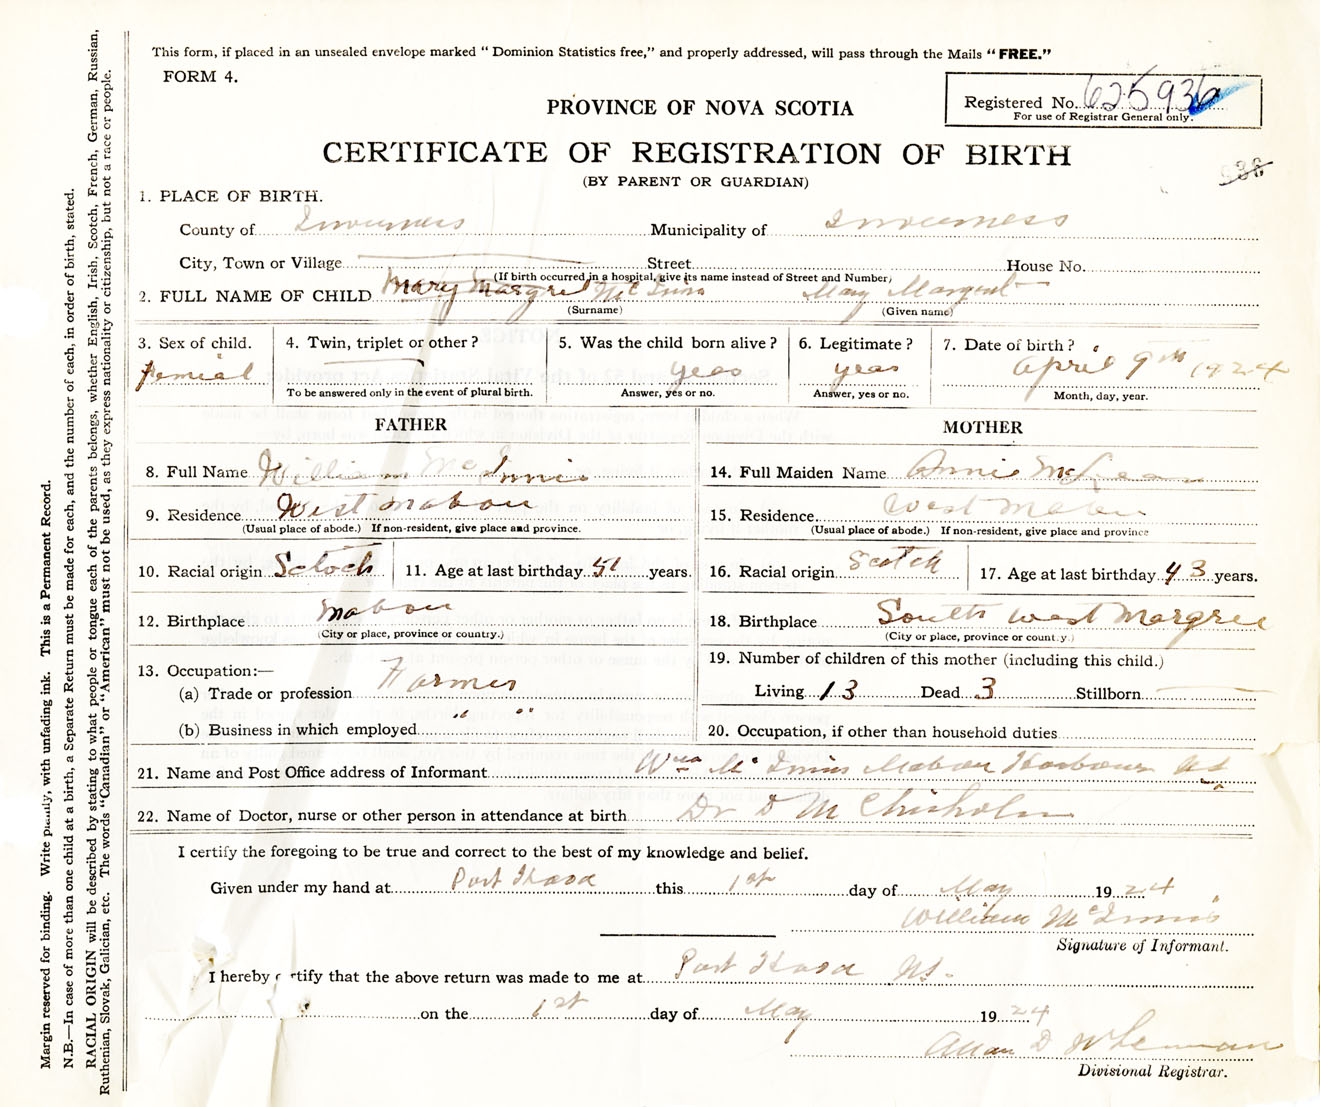 This form, if placed in an unsealed envelope marked " Dominion Statistics free," and properly addressed, will pass through the Mails " FREE."
FORM 4.
Registered No. 625936
For use of Registrar General only.
PROVINCE OF NOVA SCOTIA
CERTIFICATE OF REGISTRATION OF BIRTH
936
(BY PARENT OR GUARDIAN)
1. PLACE OF BIRTH.
County of Inverness Municipality of Inverness
City, Town or Village Street House No.
(If birth occurred in a hospital, give its name instead of Street and Number)
2. FULL NAME OF CHILD Mary Margret McInnis Mary Margret
(Surname) (Given name)
3. Sex of child. 4. Twin, triplet or other ? 5. Was the child born alive ? 6. Legitimate ? 7. Date of birth ?
femial yeas yeas April 9th 1924
To be answered only in the event of plural birth. Answer, yes or no. Answer, yes or no. Month, day, year.
FATHER MOTHER
8. Full Name William McInnis 14. Full Maiden Name Annie McLean
9. Residence West Mabou 15. Residence West Mabou
(Usual place of abode.) If non-resident, give place and province. (Usual place of abode.) If non-resident, give place and province
10. Racial origin Scotch 11. Age at last birthday 51 years. 16. Racial origin Scotch 17. Age at last birthday 43 years.
12. Birthplace Mabou 18. Birthplace South West Margree
(City or place, province or country.) (City or place, province or country.)
13. Occupation:— 19. Number of children of this mother (including this child.)
(a) Trade or profession Farmer Living 13 Dead 3 Stillborn
(b) Business in which employed " " 20. Occupation, if other than household duties
21. Name and Post Office address of Informant Wm McInnis Mabou Harbour NS
22. Name of Doctor, nurse or other person in attendance at birth Dr D M Chisholm
I certify the foregoing to be true and correct to the best of my knowledge and belief.
Given under my hand at Port Hood this 1st day of May 1924
William McInnis
Signature of Informant.
I hereby certify that the above return was made to me at Port Hood NS.
on the 1st day of May 1924
Allan D
Divisional Registrar.
Margin reserved for binding. Write plainly, with unfading ink. This is a Permanent Record.
N.B.—In case of more than one child at a birth, a Separate Return must be made for each, and the number of each, in order of birth, stated.
RACIAL ORIGIN will be described by stating to what people or tongue each of the parents belongs, whether English, Irish, Scotch, French, German, Russian,
Ruthenian, Slovak, Galician, etc. The words "Canadian" or "American" must not be used, as they express nationality or citizenship, but not a race or people.